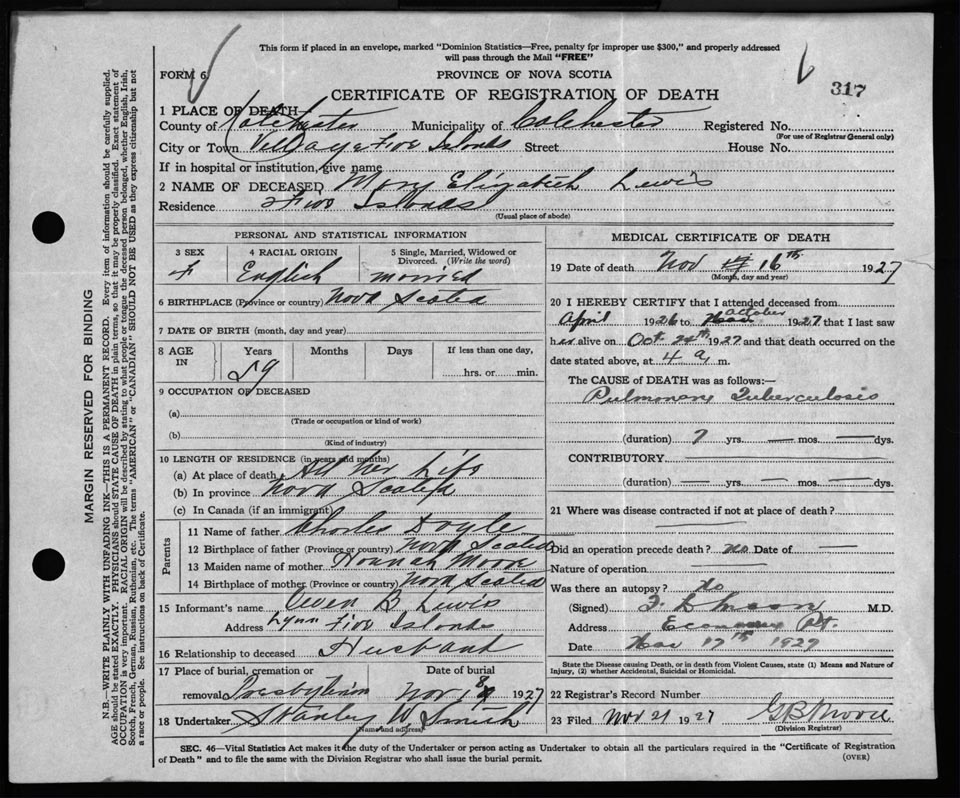 This form if placed in an envelope, marked "Dominion Statistics—Free, penalty for improper use $300," and properly addressed
will pass through the Mail "FREE"
FORM 6
PROVINCE OF NOVA SCOTIA
317
CERTIFICATE OF REGISTRATION OF DEATH
1 PLACE OF DEATH—
County of Colchester Municipality of Colchester Registered No.
(For use of Registrar General only)
City or Town Village Five Islands Street House No.
If in hospital or institution, give name
2 NAME OF DECEASED Mary Elizabeth Lewis
Residence Five Islands
(Usual place of abode)
PERSONAL AND STATISTICAL INFORMATION
3 SEX 4 RACIAL ORIGIN 5 Single, Married, Widowed or
Divorced. (Write the word)
F English Married
6 BIRTHPLACE (Province or country) Nova Scotia
7 DATE OF BIRTH (month, day and year)
8 AGE IN Years Months Days If less than one day,
hrs. or min.
9 OCCUPATION OF DECEASED
(a)
(Trade or occupation or kind of work)
(b)
(Kind of industry)
10 LENGTH OF RESIDENCE (in years and months)
(a) At place of death All her Life
(b) In province Nova Scotia
(c) In Canada (if an immigrant)
Parents
11 Name of father Charles Doyle
12 Birthplace of father (Province or country) Nova Scotia
13 Maiden name of mother Hannah Moore
14 Birthplace of mother (Province or country) Nova Scotia
15 Informant's name Owen B. Lewis
Address Five Islands
16 Relationship to deceased Husband
17 Place of burial, cremation or Date of burial
removal Presbyterian Nov 18 1927
18 Undertaker Stanley W. Smith
(Name and address)
MEDICAL CERTIFICATE OF DEATH
19 Date of death Nov 16th 1927
(Month, day and year)
20 I HEREBY CERTIFY that I attended deceased from
April 1926 to October 1927 that I last saw
her alive on Oct 24th 1927 and that death occurred on the
date stated above, at 4 a m.
The CAUSE of DEATH was as follows:—
Pulmonary Tuberculosis
(duration) yrs. — mos. — dys.
CONTRIBUTORY —
(duration) — yrs. — mos. — dys.
21 Where was disease contracted if not at place of death?
Did an operation precede death? no Date of —
Nature of operation —
Was there an autopsy? No
(Signed) M.D.
Address Economy Pt.
Date Nov 17th 1927
State the Disease causing Death, or in death from Violent Causes, state (1) Means and Nature of
Injury, (2) whether Accidental, Suicidal or Homicidal.
22 Registrar's Record Number
23 Filed Nov 21 1927 G B Moore
(Division Registrar)
SEC. 46—Vital Statistics Act makes it the duty of the Undertaker or person acting as Undertaker to obtain all the particulars required in the "Certificate of Registration
of Death" and to file the same with the Division Registrar who shall issue the burial permit.
(OVER)
MARGIN RESERVED FOR BINDING
N.B.—WRITE PLAINLY WITH UNFADING INK—THIS IS A PERMANENT RECORD. Every item of information should be carefully supplied.
AGE should be stated EXACTLY. PHYSICIANS should STATE CAUSE OF DEATH in plain terms, so that it may be properly classified. Exact statement of
OCCUPATION is very important. RACIAL ORIGIN will be described by stating to what people or tongue the deceased person belonged, whether English, Irish,
Scotch, French, German, Russian, Ruthenian, etc. The terms "AMERICAN" or "CANADIAN" SHOULD NOT BE USED as they express citizenship but not
a race or people. See instructions on back of Certificate.